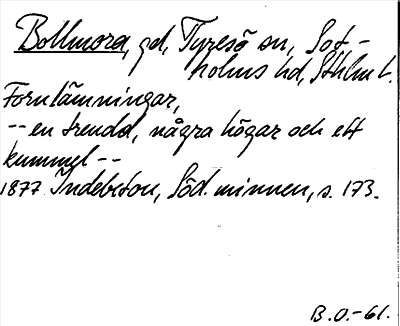 Bollmora, gd, Tyresö sn, Sot-
holms hd, Sthlm l.
Fornlämningar,
-- en treudd, några högar och ett
kummel --
1877 Indebetou, Söd. minnen, s. 173.
B.O.-61.